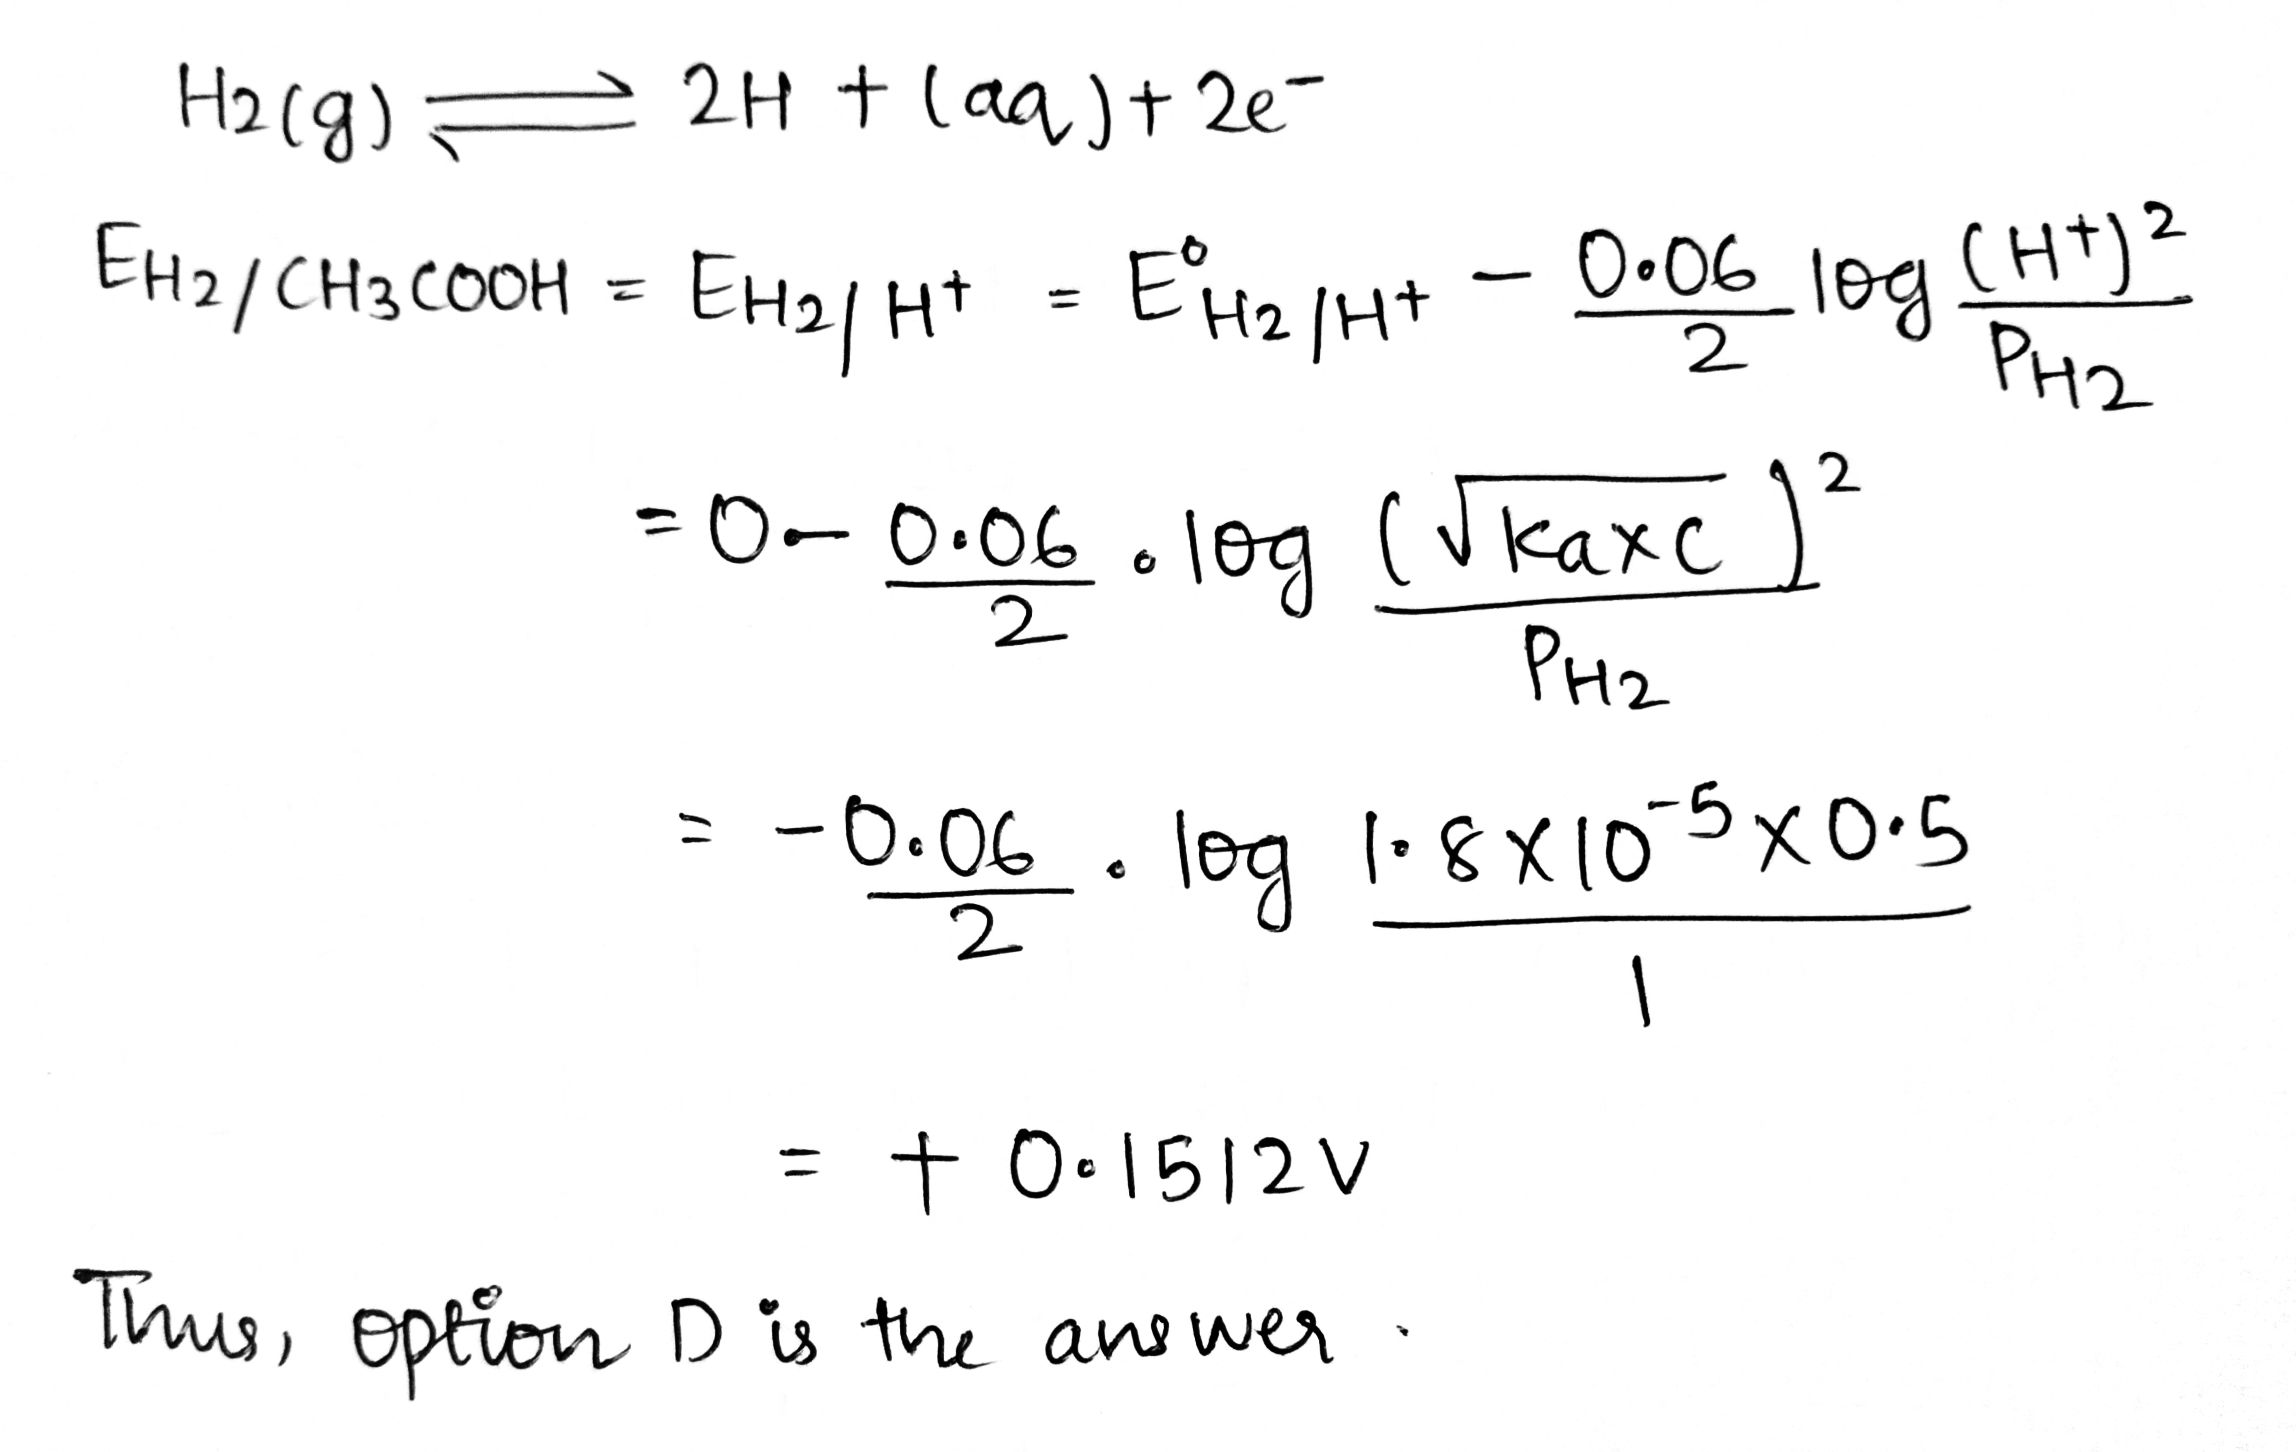 H2(g) ⇌ 2H + (aq) + 2e-
EH2/CH3COOH = EH2/H+ = E°H2/H+ - 0.06/2 log (H+)²/PH2
= 0 - 0.06/2 . log (√kaxc)²/PH2
= -0.06/2 . log 1.8x10⁻⁵x0.5/1
= + 0.1512V
Thus, option D is the answer.